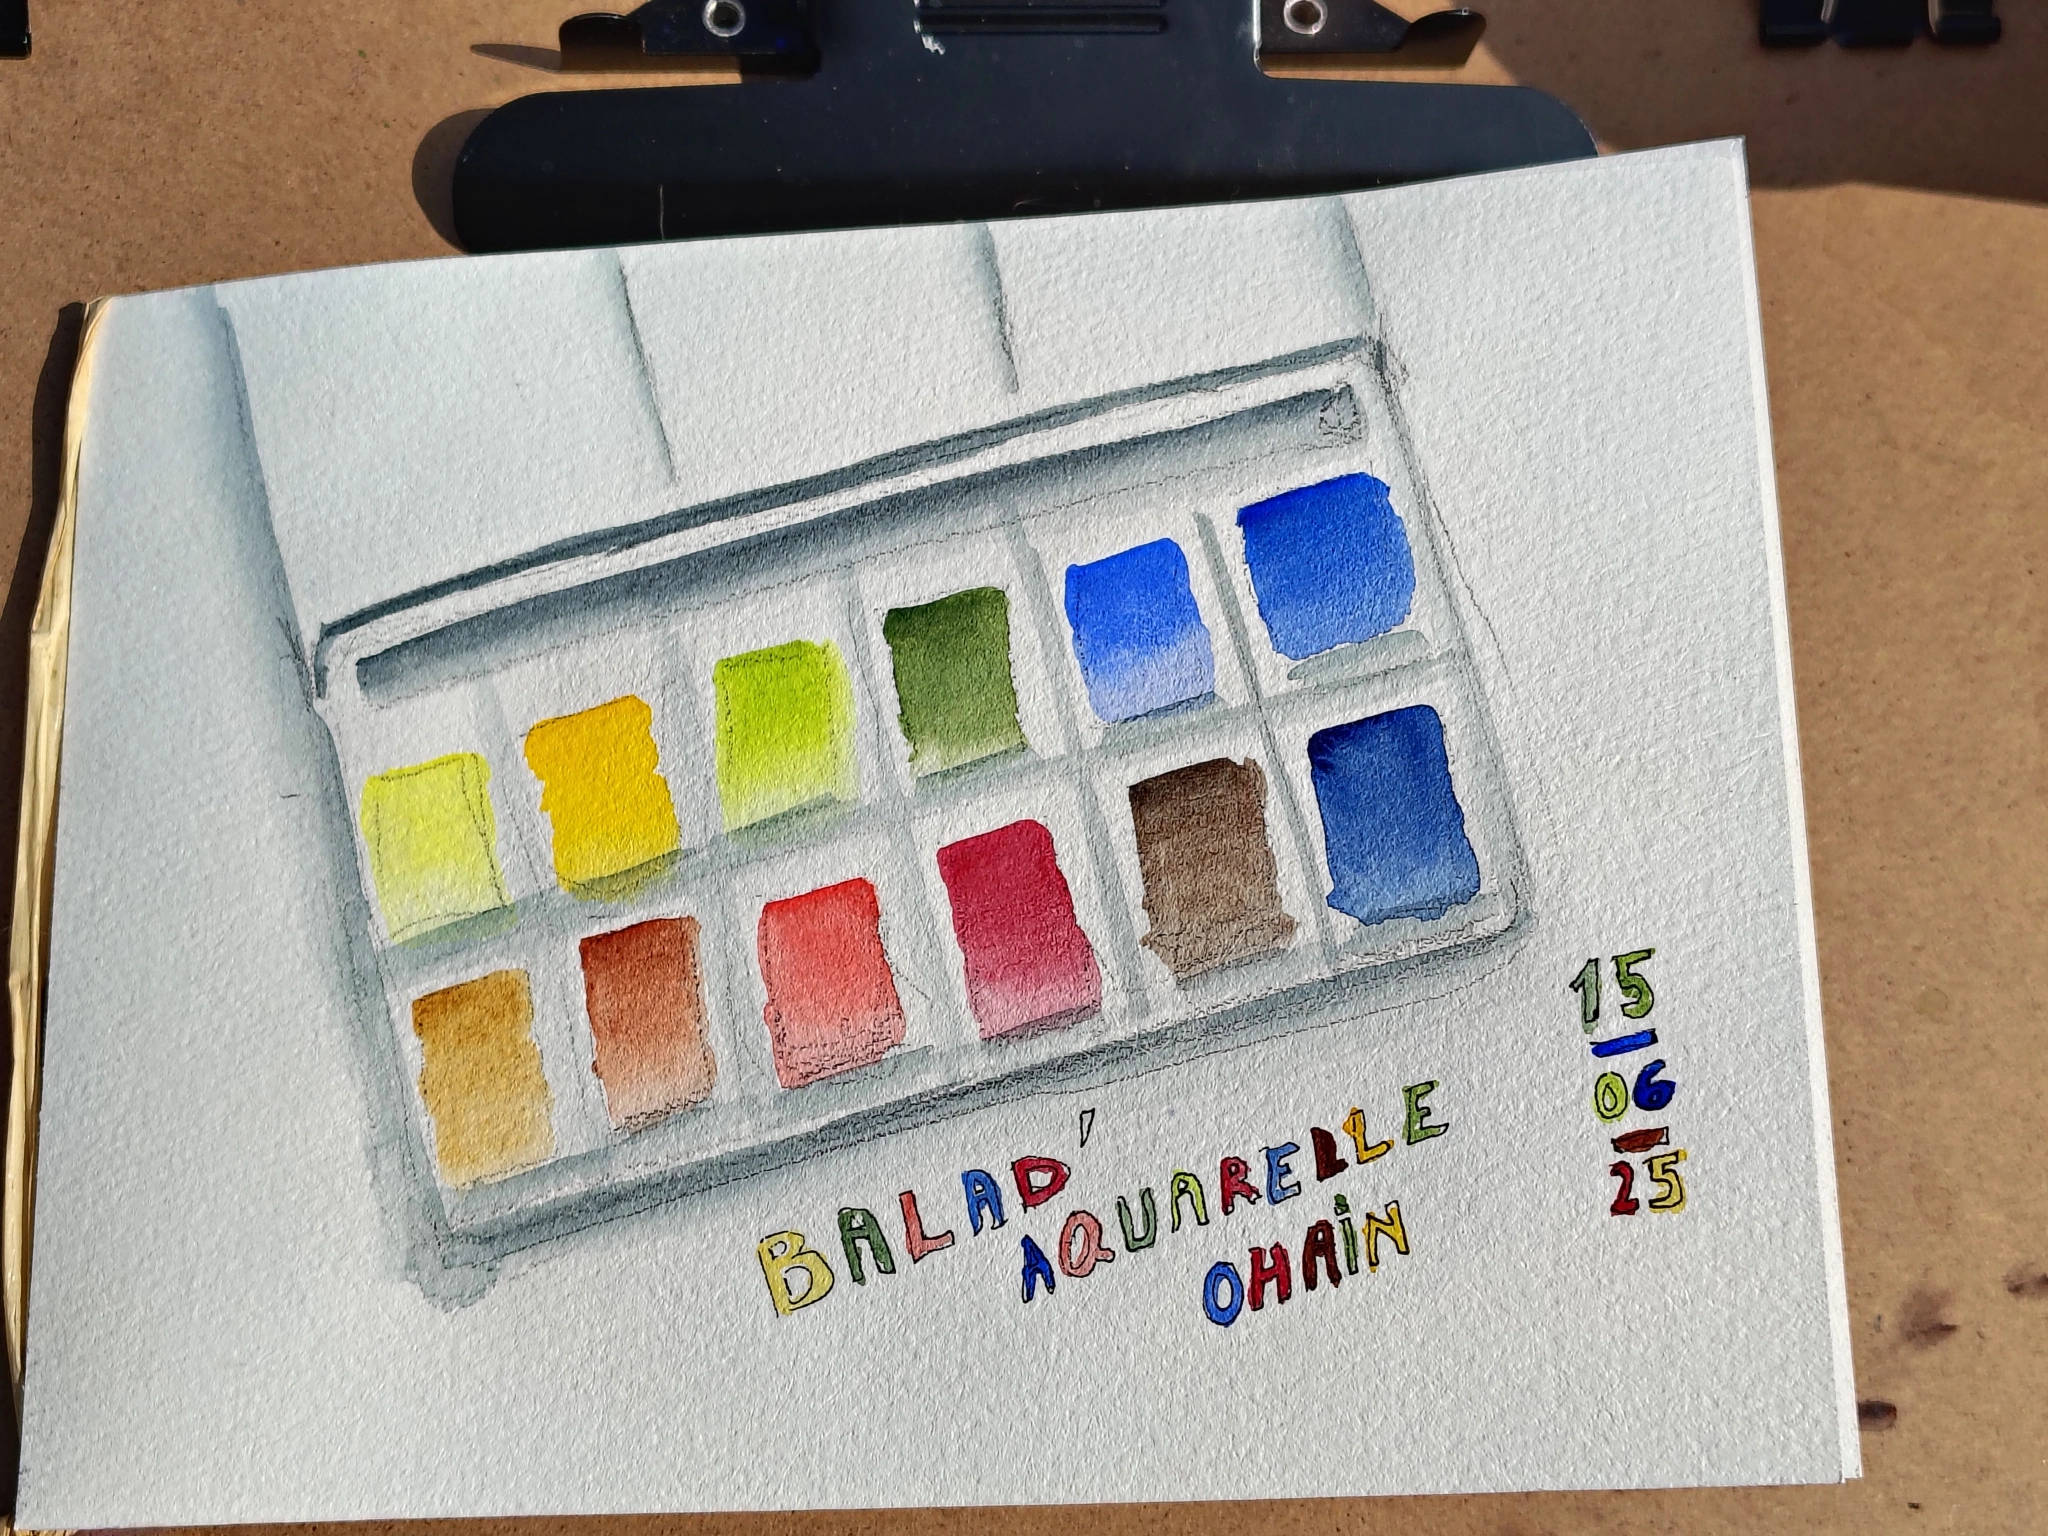 BALAD'
AQUARELLE
OHAiN
15
06
25